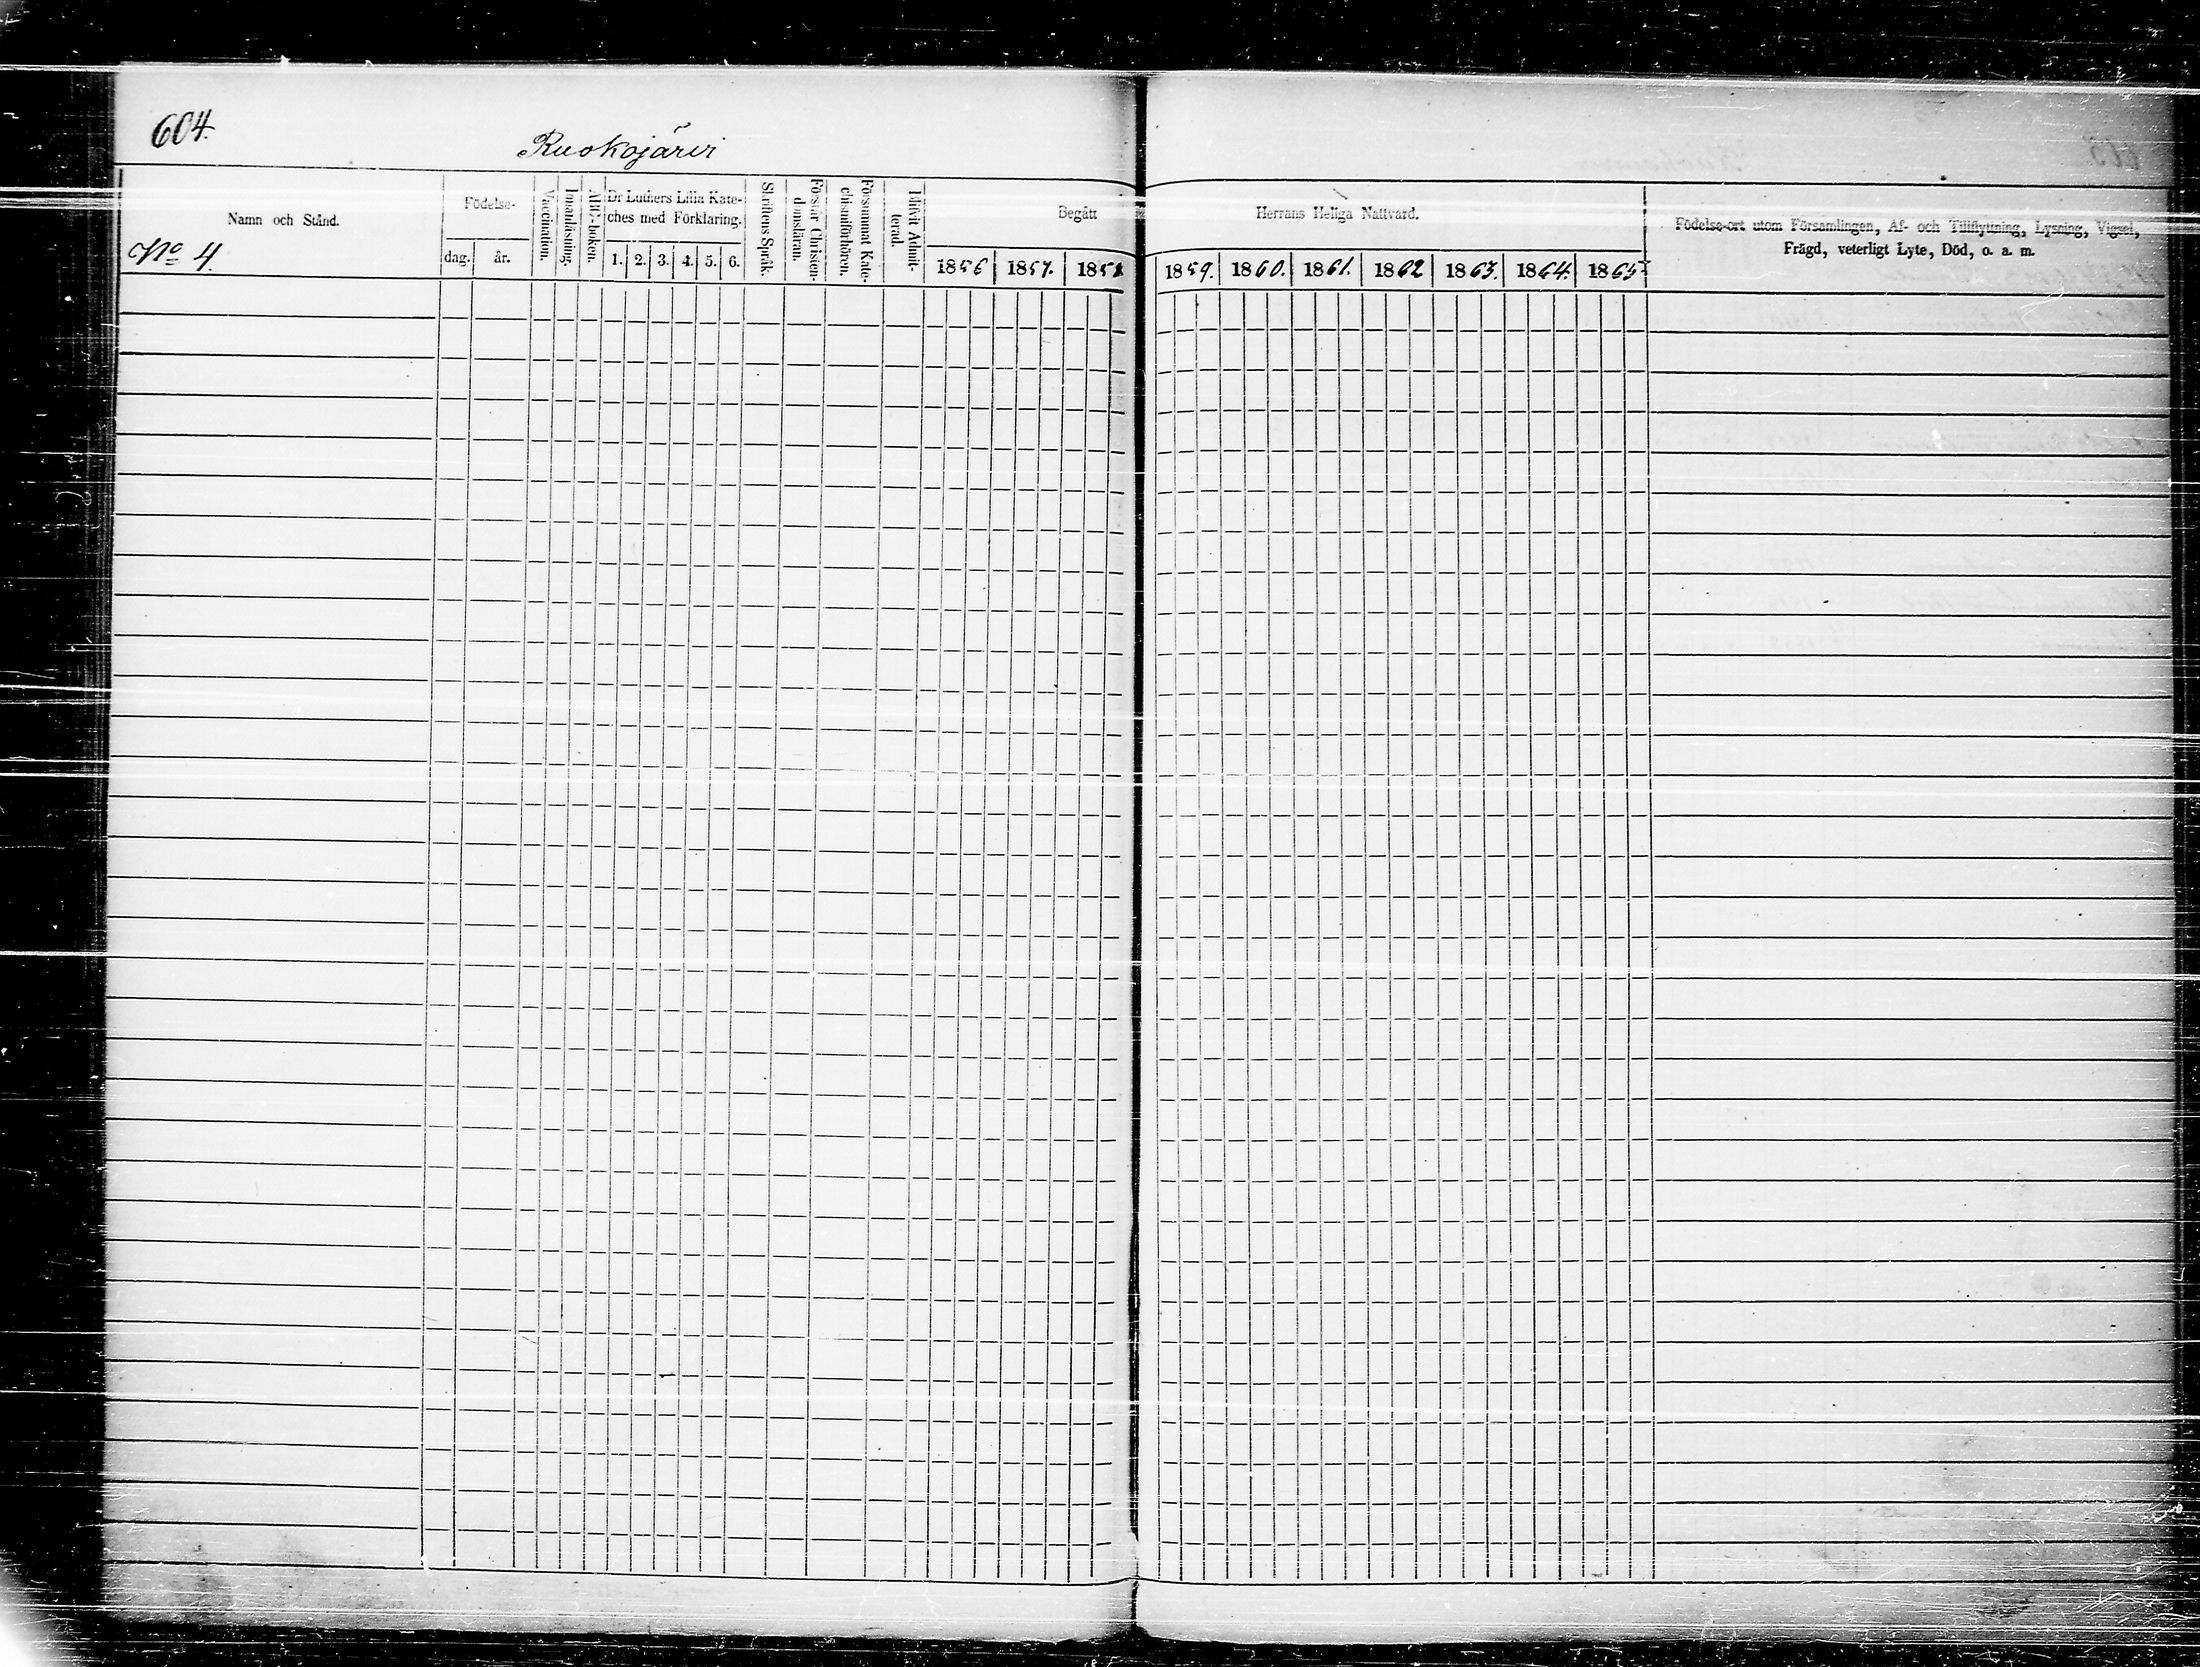 604.
Ruokojärvi
Namn och Stånd.
No 4.
Födelse-
dag. år.
Vaccination.
Innanläsning.
ABC-boken.
Dr Luthers Lilla Kate-
ches med Förklaring.
1. 2. 3. 4. 5. 6.
Skriftens Språk.
Förstår Christen-
domsläran.
Försummat Kate-
chismiförhören.
Blifvit Admit-
terad.
Begått Herrans Heliga Nattvard.
1856 1857. 1858 1859. 1860. 1861. 1862 1863. 1864. 1865
Födelse-ort utom Församlingen, Af- och Tillflyttning, Lysning, Vigsel,
Frägd, veterligt Lyte, Död, o. a. m.